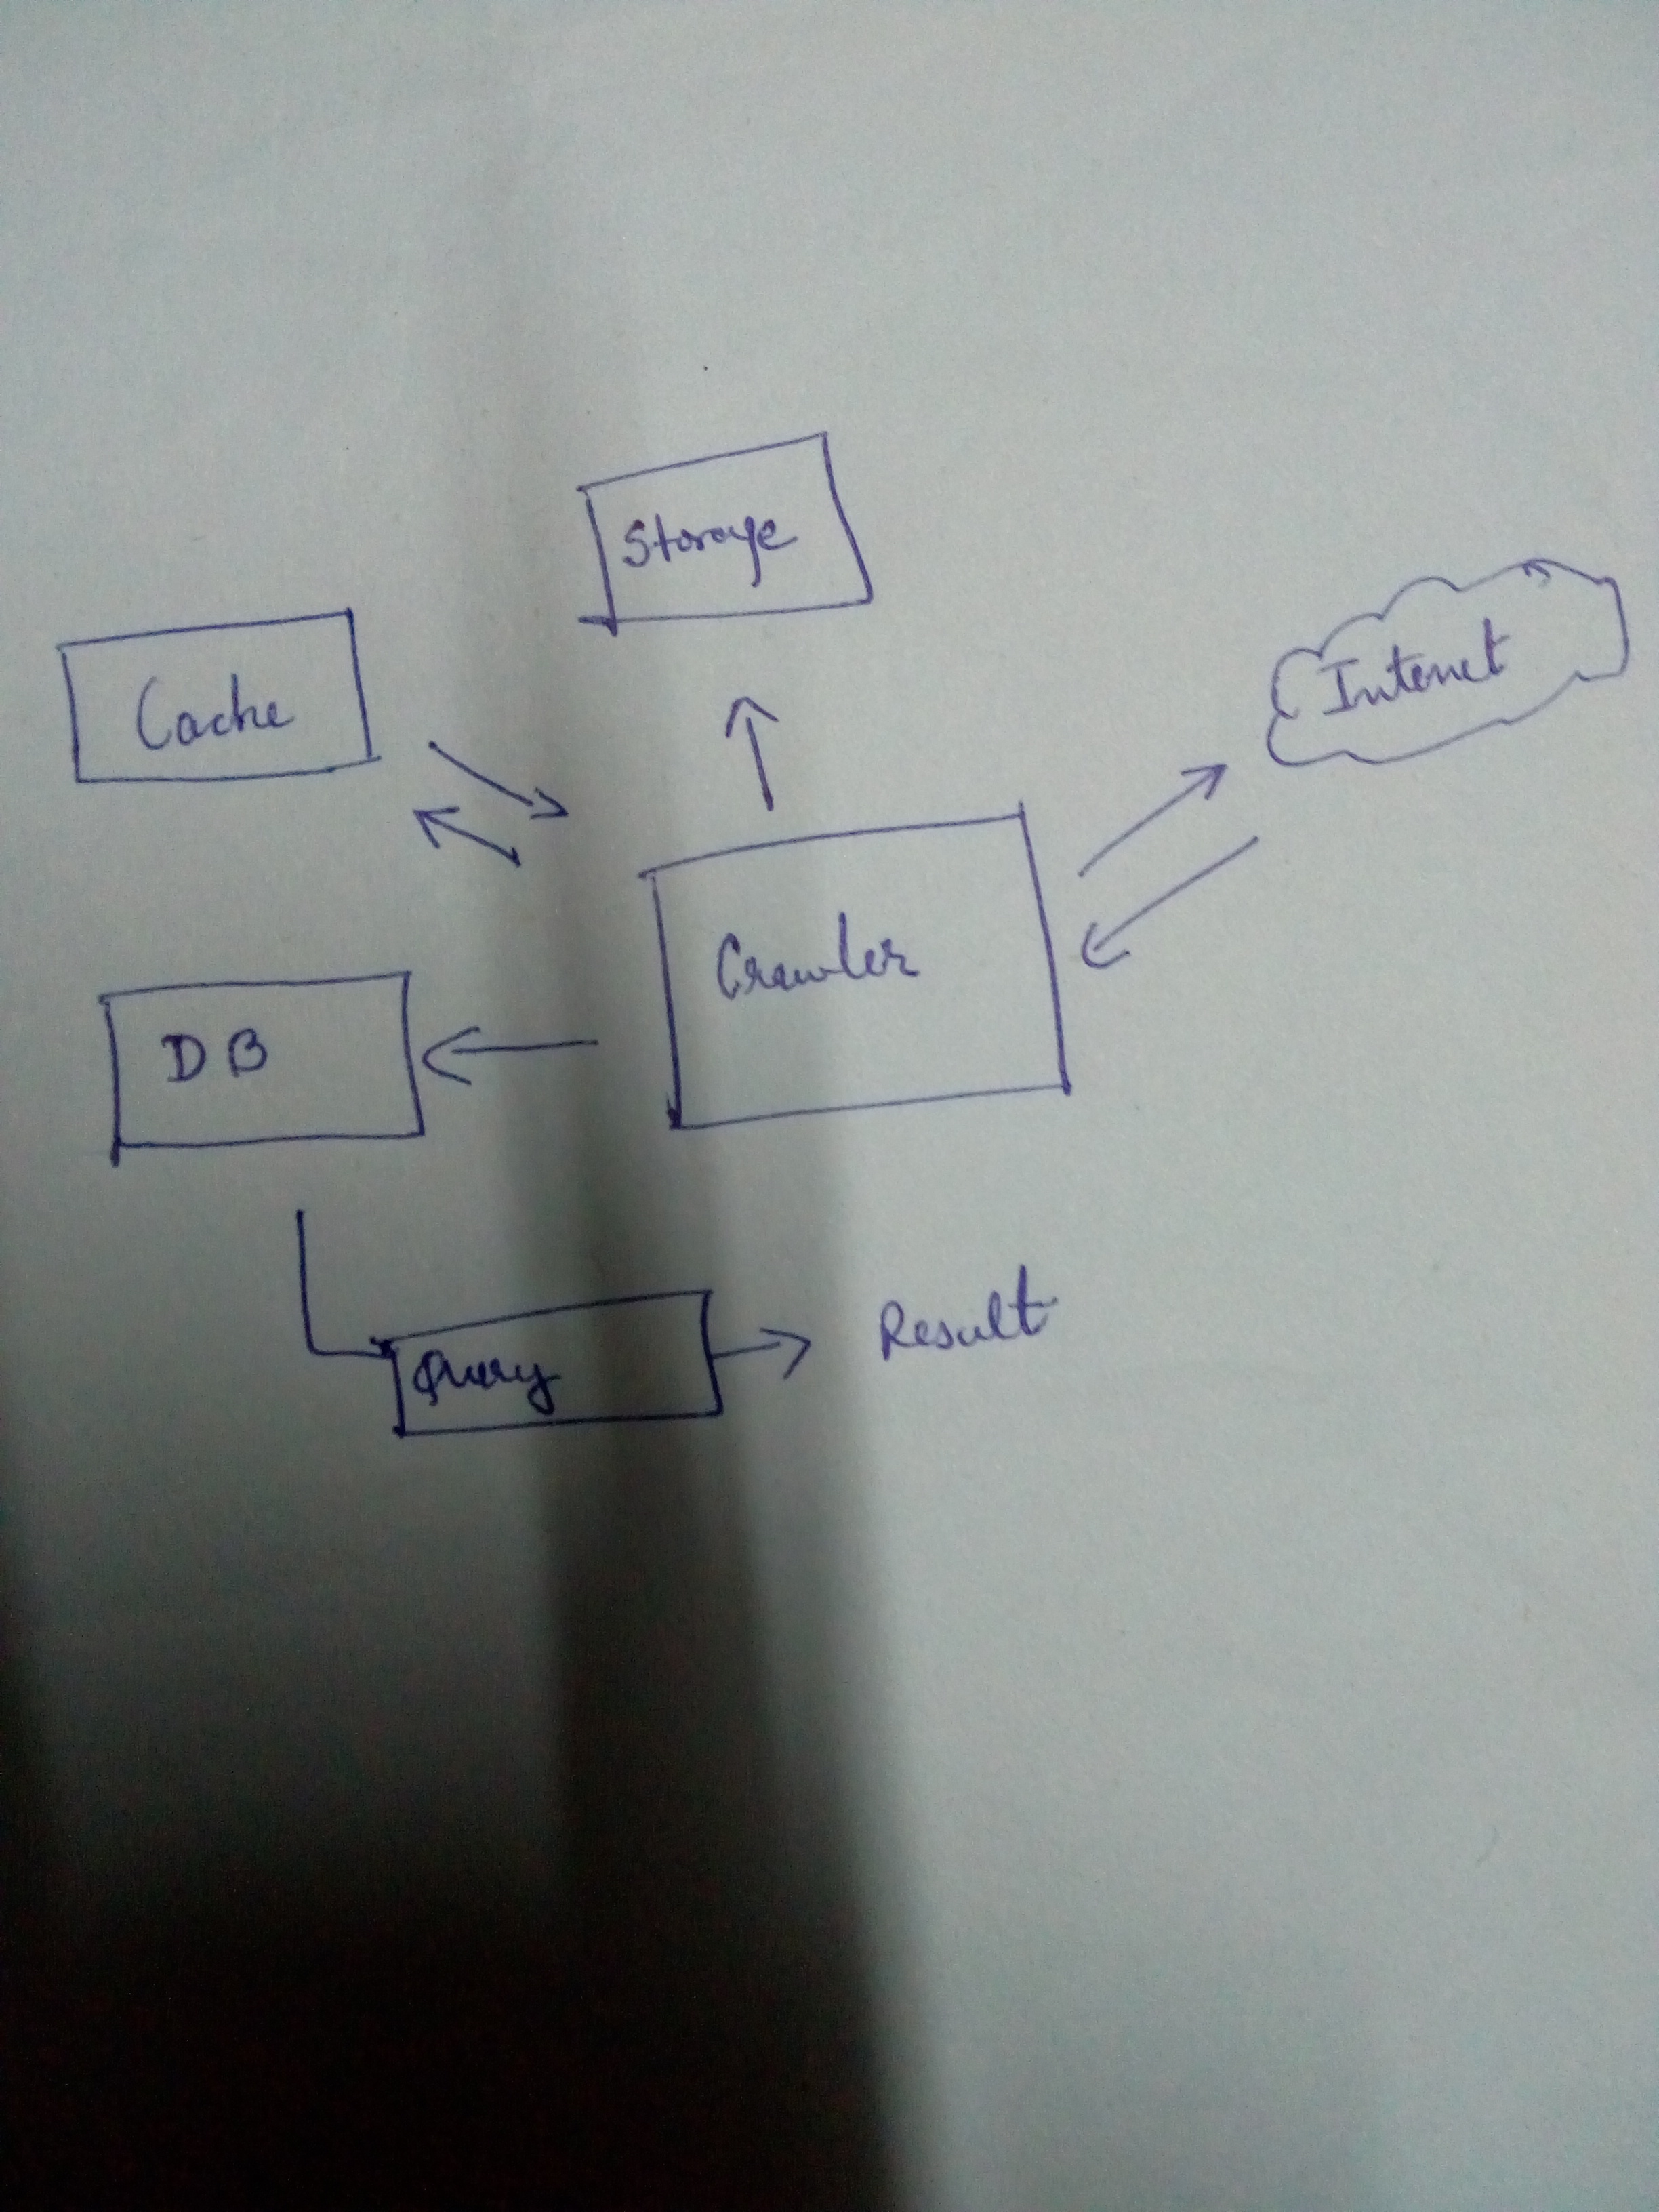 Storage
Cache
Intenet
Crawler
DB
Query
Result